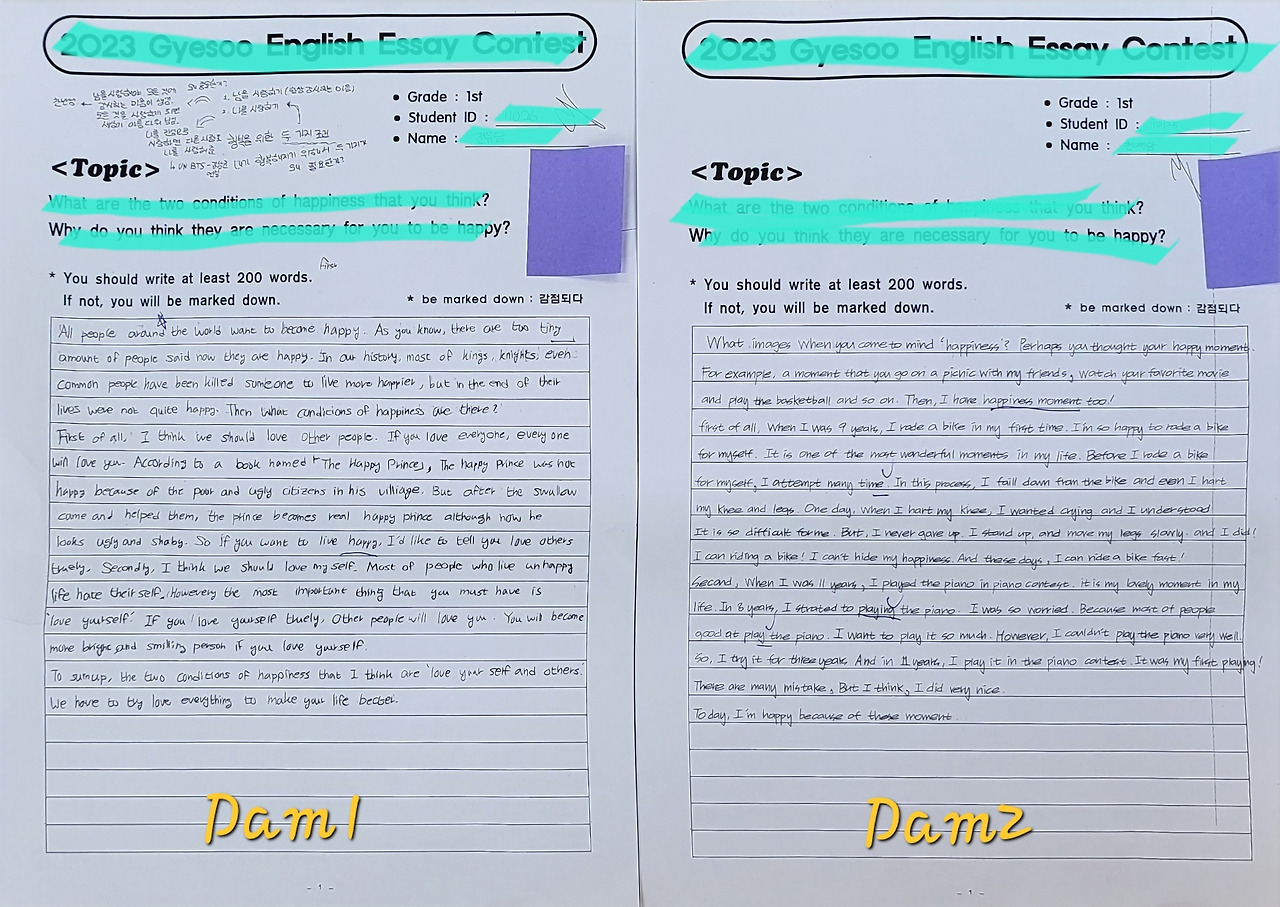 2023 Gyesoo English Essay Contest
1. 남을 사랑하기
2. 나를 사랑하기
행복을 위한 두 가지 조건
• Grade : 1st
• Student ID :
• Name :
<Topic>
What are the two conditions of happiness that you think?
Why do you think they are necessary for you to be happy?
First
* You should write at least 200 words.
If not, you will be marked down.
* be marked down : 감점되다
All people around the world want to become happy. As you know, there are too tiny
amount of people said now they are happy. In our history, most of kings, knights, even
common people have been killed someone to live more happier, but in the end of their
lives were not quite happy. Then what conditions of happiness are there?
First of all, I think we should love other people. If you love everyone, every one
will love you. According to a book named 「The Happy Prince」, The happy Prince was not
happy because of the poor and ugly citizens in his villiage. But after the swallow
came and helped them, the prince becomes real happy prince although now he
looks ugly and shaby. So if you want to live happy, I'd like to tell you love others
truely. Secondly, I think we should love my self. Most of people who live unhappy
life hate their self. Howevery the most important thing that you must have is
'love yourself.' If you love yourself truely, Other people will love you. You will become
more bright and smilling person if you love yourself.
To sum up, the two conditions of happiness that I think are 'love your self and others.
We have to try love everything to make your life better.
- 1 -
Dam1
2023 Gyesoo English Essay Contest
• Grade : 1st
• Student ID :
• Name :
<Topic>
What are the two conditions of happiness that you think?
Why do you think they are necessary for you to be happy?
* You should write at least 200 words.
If not, you will be marked down.
* be marked down : 감점되다
What images when you come to mind 'happiness'? Perhaps you thought your happy moment.
For example, a moment that you go on a picnic with my friends, watch your favorite movie
and play the basketball and so on. Then, I have happiness moment too!
first of all, When I was 9 years, I rode a bike in my first time. I'm so happy to rode a bike
for myself. It is one of the most wonderful moments in my life. Before I rode a bike
for myself, I attempt many time. In this process, I faill down from the bike and even I hart
my knee and legs. One day, when I hart my knee, I wanted crying. and I understood
It is so difficult for me. But, I never gave up. I stand up, and move my legs slowly. and I did!
I can riding a bike! I can't hide my happiness. And these days, I can ride a bike fast!
Second, When I was 11 years, I played the piano in piano contest. it is my lovely moment in my
life. In 8 years, I strated to playing the piano. I was so worried. Because most of people
good at play the piano. I want to play it so much. However, I couldn't play the piano very well.
So, I try it for three years. And in 11 years, I play it in the piano contest. It was my first playing!
There are many mistake, But I think, I did very nice.
Today, I'm happy because of these moment.
- 1 -
Dam2